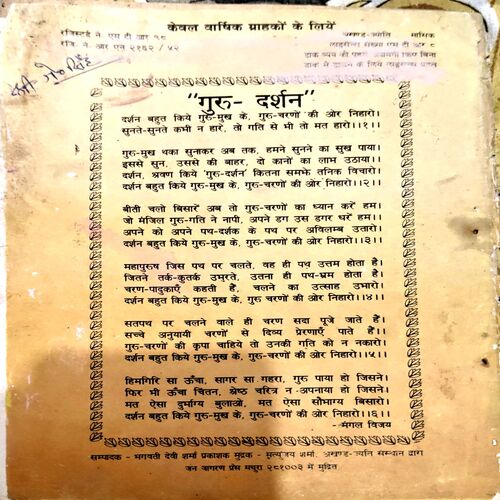 केवल वार्षिक ग्राहकों के लिये
रजिस्टर्ड नं. एस टी आर १८
रजि. नं. आर एन २१६२ / ५२
अखण्ड-ज्योति मासिक
लाइसेंस संख्या एम टी आर ८
डाक व्यय की पहले अदायगी किए बिना
डाक में डालने के लिये लाइसेन्स प्राप्त
"गुरु- दर्शन"
दर्शन बहुत किये गुरु-मुख के, गुरु-चरणों की ओर निहारो।
सुनते-सुनते कभी न हारे, तो गति से भी तो मत हारो।।१।।
गुरु-मुख थका सुनाकर अब तक, हमने सुनने का सुख पाया।
इससे सुन, उससे की बाहर, दो कानों का लाभ उठाया।।
दर्शन, श्रवण किये 'गुरु-दर्शन' कितना समझे तनिक विचारो।
दर्शन बहुत किये गुरु-मुख के, गुरु-चरणों की ओर निहारो।।२।।
बीती चलो बिसारें अब तो गुरु-चरणों का ध्यान करें हम।
जो मंजिल गुरु-गति ने नापी, अपने डग उस डगर धरें हम।।
अपने को अपने पथ-दर्शक के पथ पर अविलम्ब उतारो।
दर्शन बहुत किये गुरु-मुख के, गुरु-चरणों की ओर निहारो।।३।।
महापुरुष जिस पथ पर चलते, वह ही पथ उत्तम होता है।
जितने तर्क-कुतर्क उभरते, उतना ही पथ-भ्रम होता है।
चरण-पादुकाएँ कहती हैं, चलने का उत्साह उभारो।
दर्शन बहुत किये गुरु-मुख के, गुरु चरणों की ओर निहारो।।४।।
सतपथ पर चलने वाले ही चरण सदा पूजे जाते हैं।
सच्चे अनुयायी चरणों से दिव्य प्रेरणाएँ पाते हैं।।
गुरु-चरणों की कृपा चाहिये तो उनकी गति को न नकारो।
दर्शन बहुत किये गुरु-मुख के, गुरु-चरणों की ओर निहारो।।५।।
हिमगिरि सा ऊँचा, सागर सा गहरा, गुरु पाया हो जिसने।
फिर भी ऊँचा चिंतन, श्रेष्ठ चरित्र न अपनाया हो जिसने।
मत ऐसा दुर्भाग्य बुलाओ, मत ऐसा सौभाग्य बिसारो।
दर्शन बहुत किये गुरु-मुख के, गुरु-चरणों की ओर निहारो।।६।।
- मंगल विजय
सम्पादक - भगवती देवी शर्मा प्रकाशक मुद्रक - मृत्युंजय शर्मा, अखण्ड-ज्योति संस्थान द्वारा
जन जागरण प्रेस मथुरा २८१००३ में मुद्रित